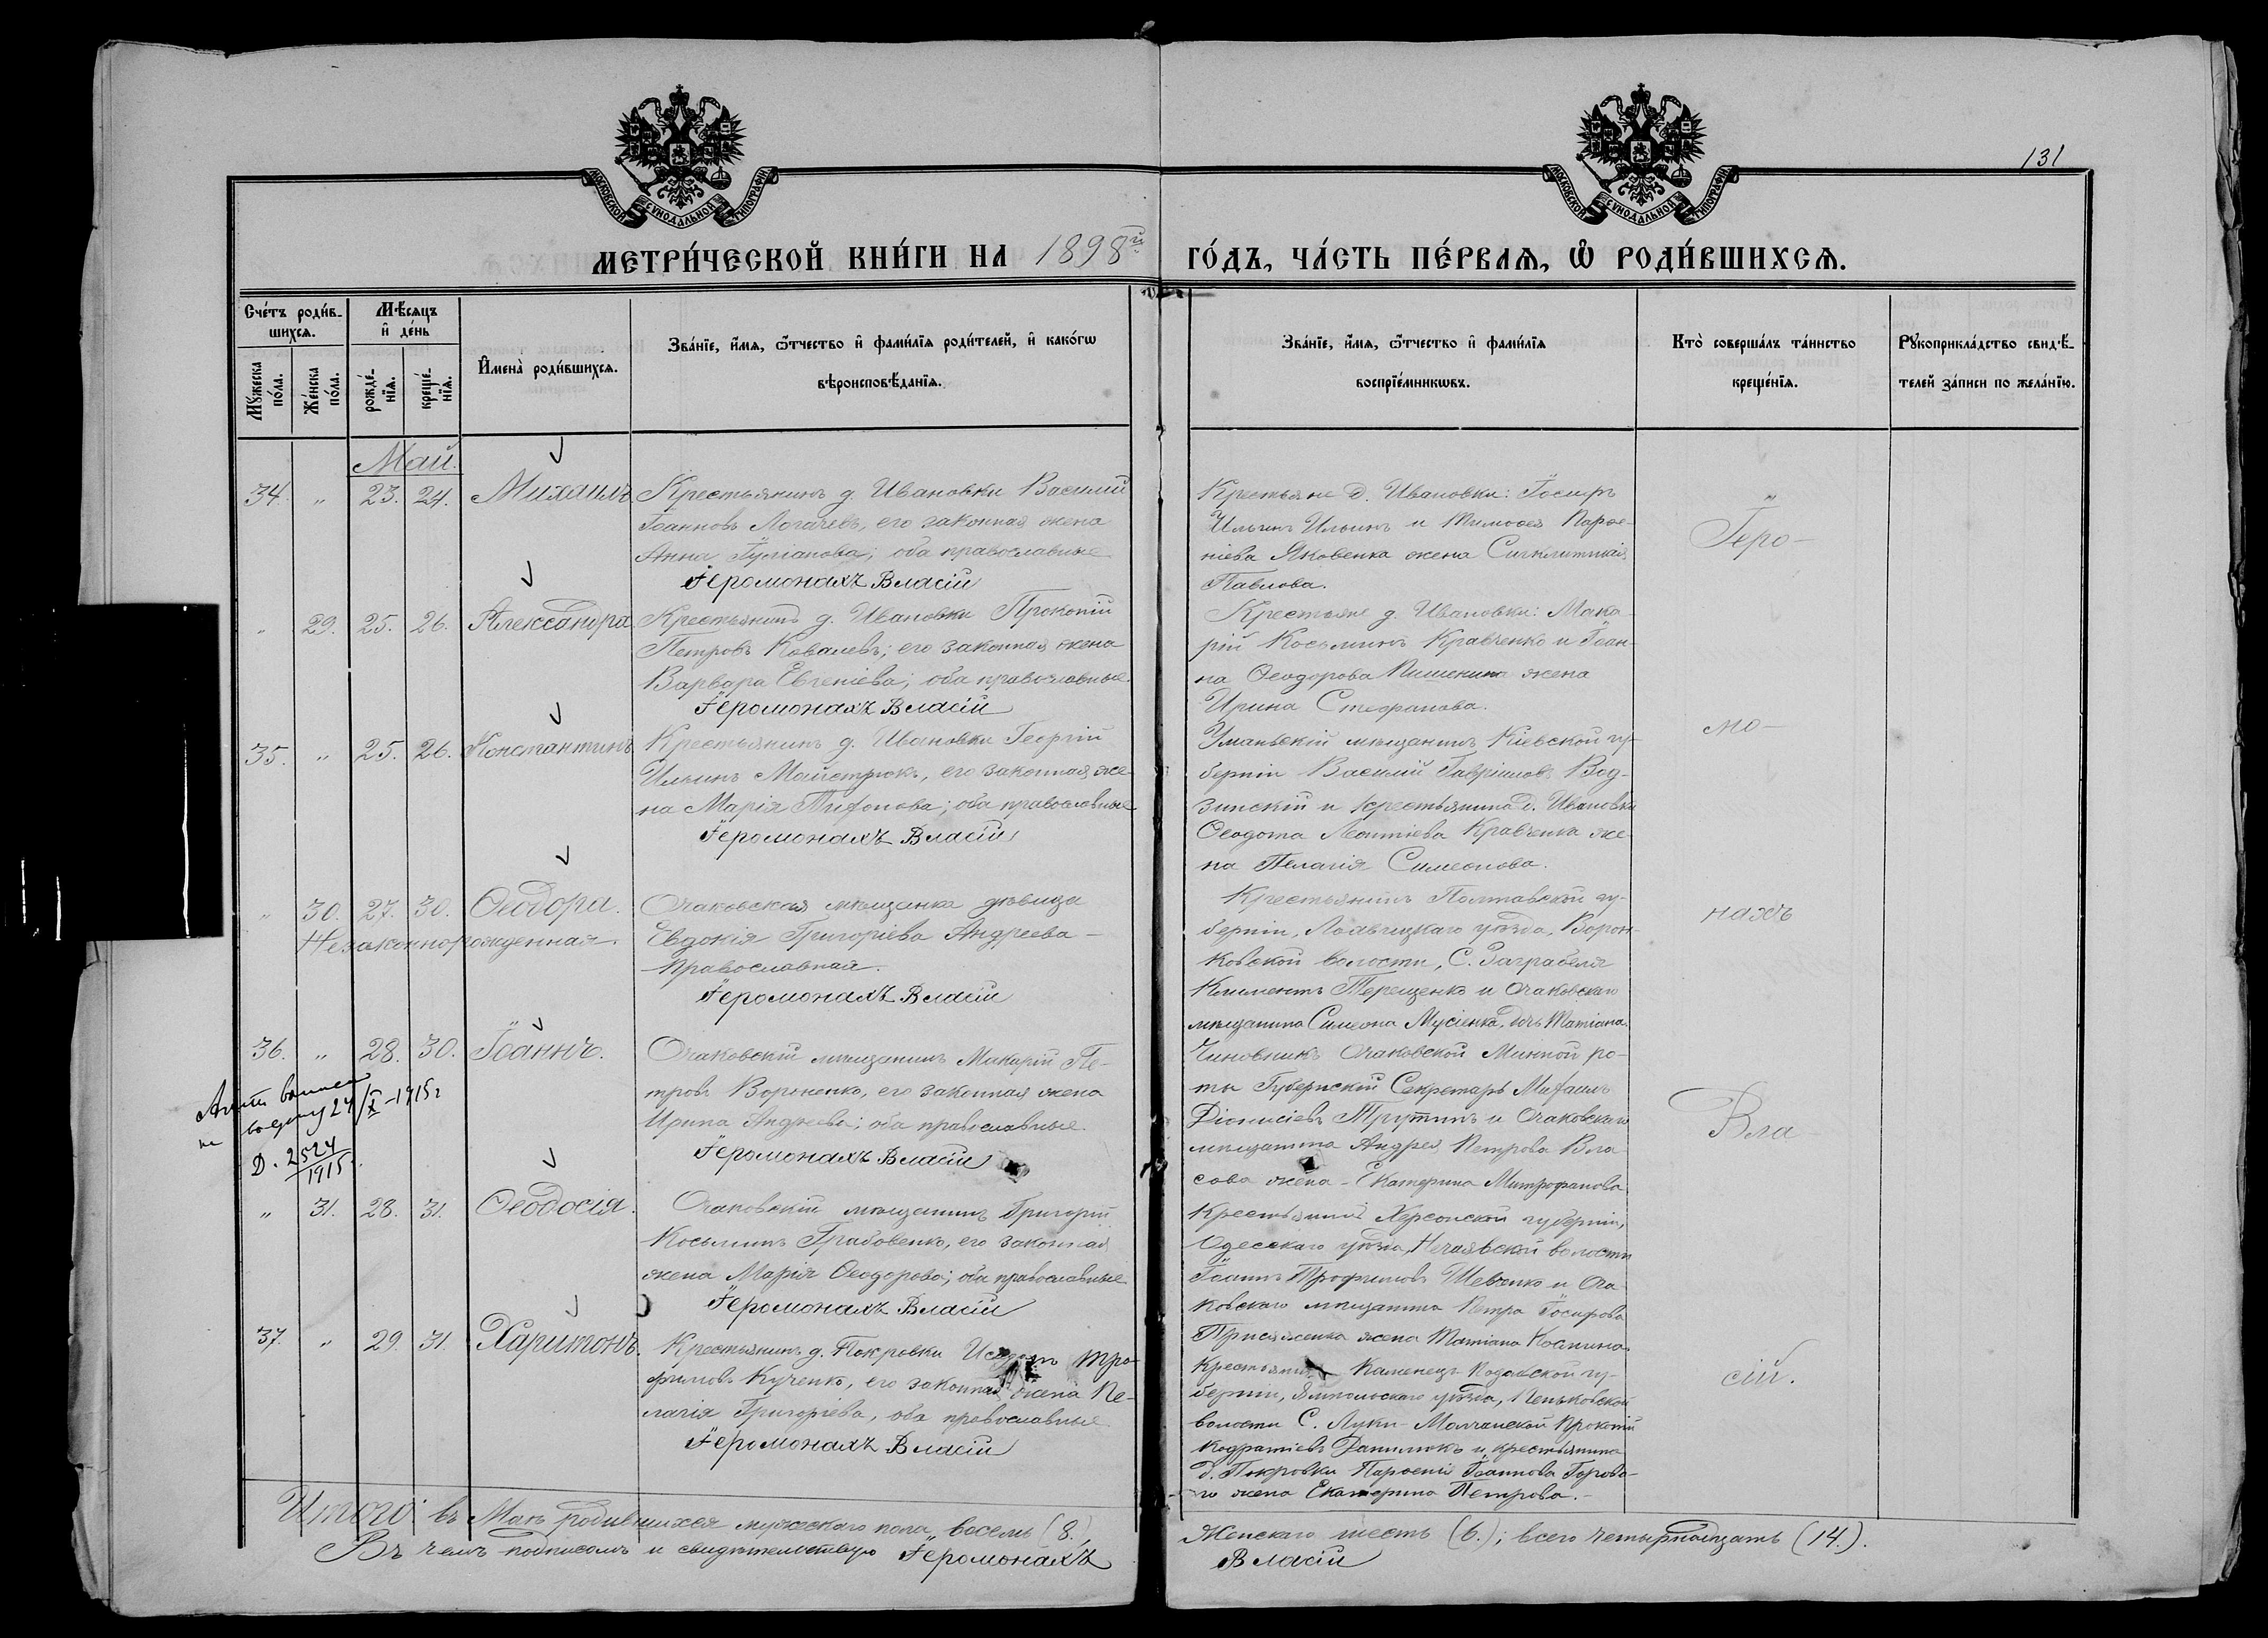 131
МОСКОВСКОЙ СУНОДАЛЬНОЙ ТИПОГРАФІИ
МОСКОВСКОЙ СУНОДАЛЬНОЙ ТИПОГРАФІИ
МЕТРИ́ЧЕСКОЙ КНИ́ГИ НА 1898й ГО́ДЪ, ЧА́СТЬ ПЕ́РВАѦ, Ѡ РОДИ́ВШИХСѦ.
Сче́тъ роди́в-
шихсѧ.
Мꙋжеска по́ла.
Же́нска по́ла.
Мѣ́сѧцъ
и҆ де́нь
рожде́-
нїѧ.
креще́-
нїѧ.
И҆мена̀ роди́вшихсѧ.
Зва́нїе, и҆́мѧ, ѻ҆́тчество и҆ фами́лїѧ роди́телей, и҆ како́гѡ
вѣроисповѣ́данїѧ.
Зва́нїе, и҆́мѧ, ѻ҆́тчество и҆ фами́лїѧ
воспрїе́мникѡвъ.
Кто̀ соверша́лъ та́инство
креще́нїѧ.
Рꙋкоприкла́дство свидѣ́-
телей за́писи по жела́нїю.
Май.
34. " 23. 24. Михаилъ
Крестьянинъ д. Ивановки Василій
Іоанновъ Логачевъ, его законная жена
Анна Іуліанова; оба православные
Іеромонахъ Власій
Крестьяне д. Ивановки: Іосифъ
Ильинъ Ильинъ и Тимоѳея Парѳе-
ніева Яковенка жена Сигклитикія
Павлова.
" 29. 25. 26. Александра
Крестьянинъ д. Ивановки Прокопій
Петровъ Ковалевъ; его законная жена
Варвара Евгеніева; оба православные
Іеромонахъ Власій
Крестьяне д. Ивановки: Мака-
рій Косьминъ Кравченко и Іоан-
на Ѳеодорова жена
Ирина Стефанова.
35. " 25. 26. Константинъ
Крестьянинъ д. Ивановки Георгій
Ильинъ Майстрюкъ, его законная же-
на Марія Тифонова; оба православные
Іеромонахъ Власій
Уманьскій мѣщанинъ Кіевской гу-
берніи Василій Гавріиловъ Вод-
зинскій и крестьянина д. Ивановки
Ѳеодота Леонтіева Кравченка же-
на Пелагія Симеонова.
" 30. 27. 30. Ѳеодора.
Незаконнорожденная.
Очаковская мѣщанка дѣвица
Евдокія Григоріева Андреева -
православная.
Іеромонахъ Власій
Крестьянинъ Полтавской гу-
берніи, Лохвицкаго уѣзда, Ворон-
ковской волости, С. Заграбеля
Климентъ Терещенко и Очаковскаго
мѣщанина Симеона Мусіенка, дочь Татіана.
36. " 28. 30. Іоаннъ.
24/X-1915 г
Д. 2524
1915.
Очаковскій мѣщанинъ Макарій Пе-
тровъ Вороненко, его законная жена
Ирина Андреева; оба православные.
Іеромонахъ Власій
Чиновникъ Очаковской Минной ро-
ты Губернскій Секретарь Михаилъ
Діонисіевъ Трутинъ и Очаковскаго
мѣщанина Андрея Петрова Вла-
сова жена - Екатерина Митрофанова
" 31. 28. 31. Ѳеодосія.
Очаковскій мѣщанинъ Григорій
Косьминъ Грабовенко, его законная
жена Марія Ѳеодорова; оба православные
Іеромонахъ Власій
Крестьянинъ Херсонской губерніи,
Одесскаго уѣзда, Нечаявской волости
Іоаннъ Трофимовъ Шевченко и Оча-
ковскаго мѣщанина Петра Іосифова
Присяженка жена Татіана
37. " 29. 31. Харитонъ.
Крестьянинъ д. Покровки Исидоръ Тро-
фимовъ Кученко, его законная жена Пе-
лагія Григорьева, оба православные
Іеромонахъ Власій
Крестьянинъ Каменецъ Подольской гу-
берніи, Ямпольскаго уѣзда, Пеньковской
волости С. Луки-Молчанской Прокопій
Кодратіевъ Данилюкъ и крестьянина
д. Покровки Парѳенія Іоаннова Горова-
го жена Екатерина Петрова. -
Іеро-
мо-
нахъ
Вла
сій.
Итого въ Маѣ родившихся мужескаго пола восемь (8.), Женскаго шесть (6.); всего четырнадцать (14.).
Въ чемъ подписомъ и свидѣтельствую Іеромонахъ Власій